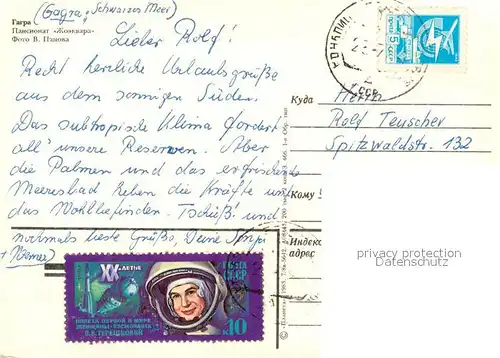 (Gagra, Schwarzes Meer)
Гагра
Пансионат «Жоэквара»
Фото В. Панова
Lieber Rolf!
Recht herzliche Urlaubsgrüße
aus dem sonnigen Süden.
Das subtropische Klima fordert
all' unsere Reserven. Aber
die Palmen und das erfrischende
Meeresbad heben die Kräfte und
das Wohlbefinden. Tschüß! und
nochmals beste Grüße, Deine
+ Werner)
ПОЧТА СССР
5
Куда
Herrn
Rolf Teuscher
Spitzwaldstr. 132
Кому
Индекс
адрес
privacy protection
oldthing.de
XX-ЛЕТИЕ
ПОЛЕТА ПЕРВОЙ В МИРЕ
ЖЕНЩИНЫ-КОСМОНАВТА
В.В. ТЕРЕШКОВОЙ
ПОЧТА
СССР
10